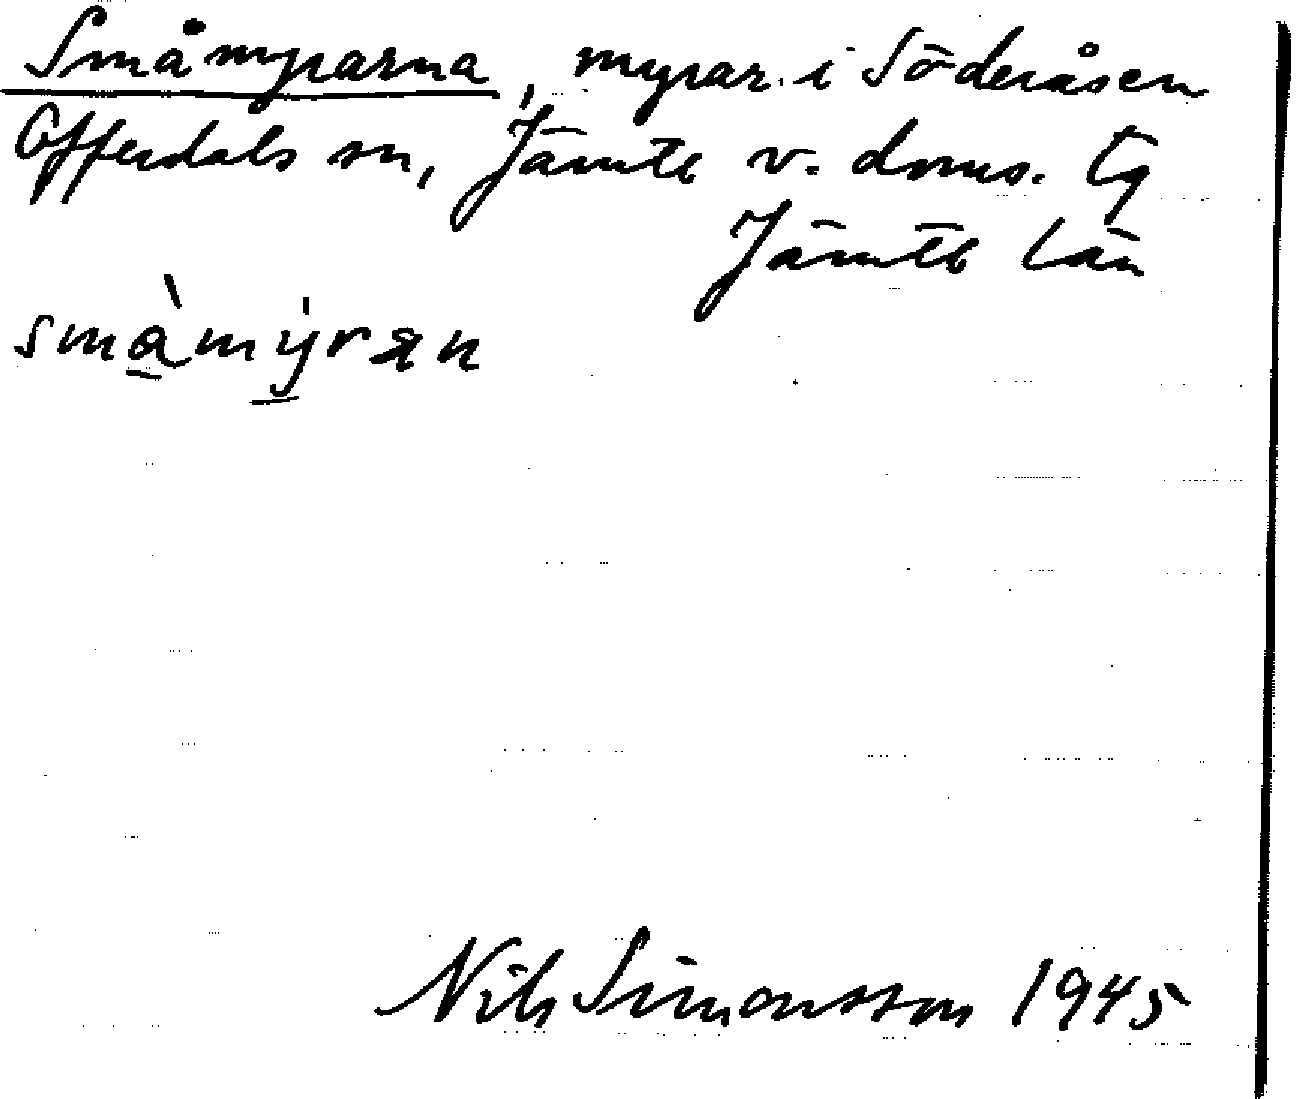 Småmyrarna, myrar i Söderåsen
Offerdals sn, Jämtl v. doms. tg
Jämtl län
små̀mýrạn
Nils Simonsson 1945